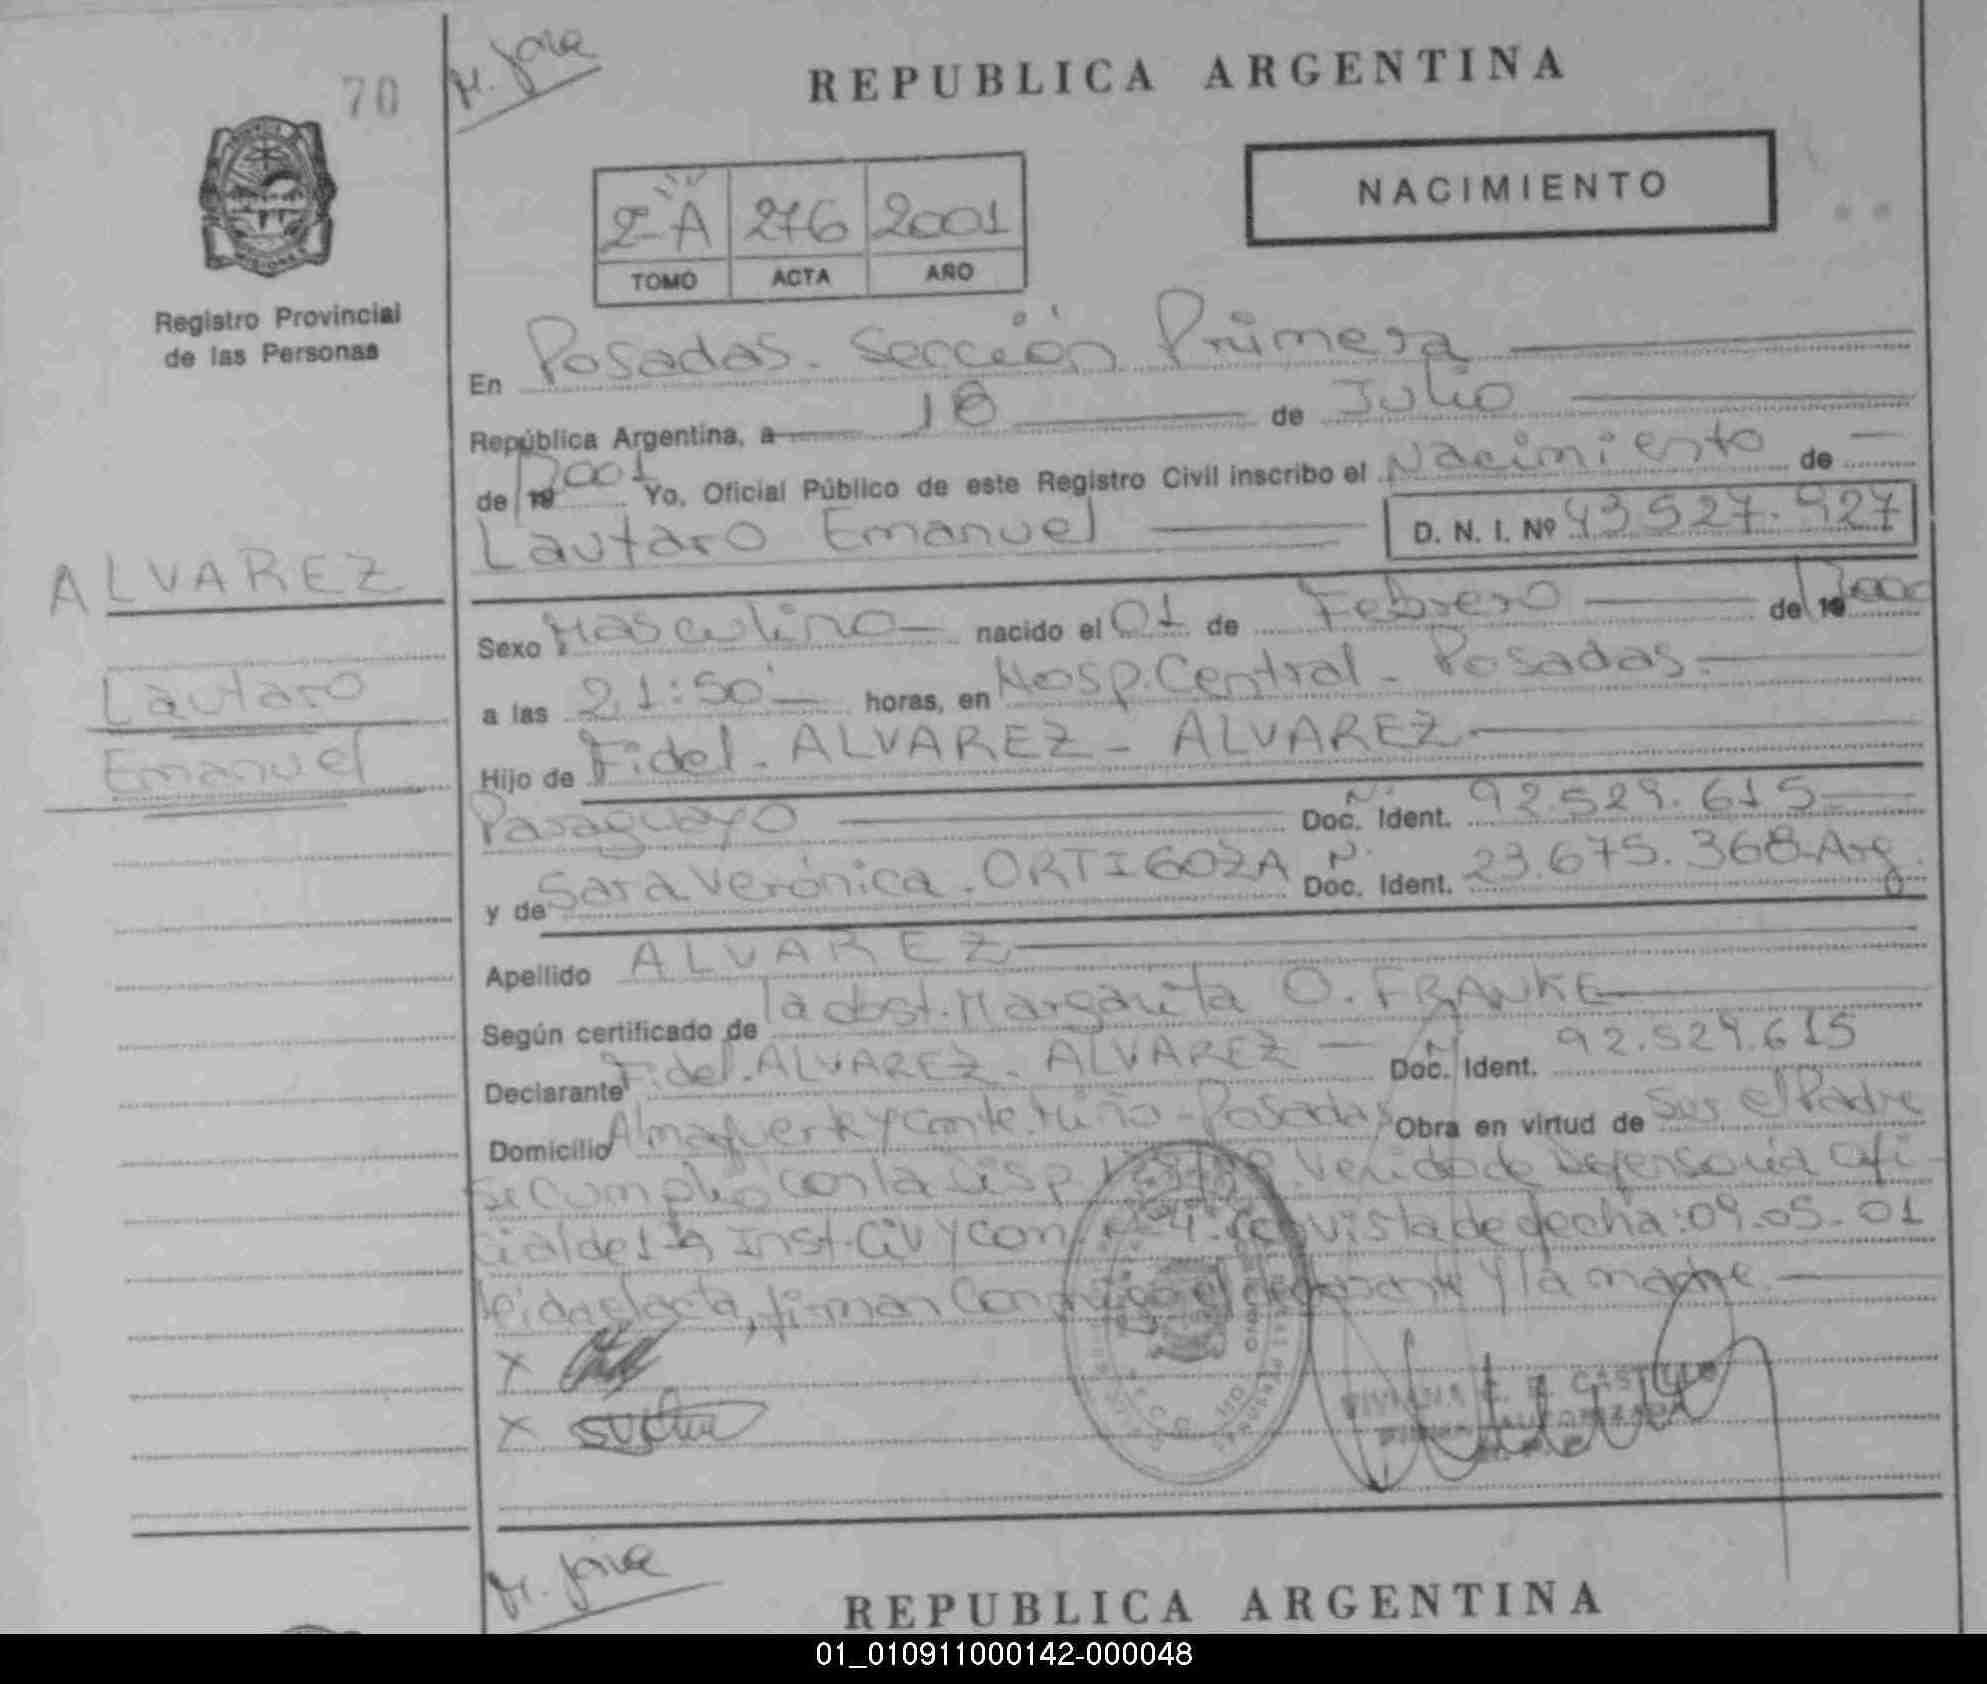 70
M. Jova
REPUBLICA ARGENTINA
NACIMIENTO
2-A 276 2001
TOMO ACTA AÑO
Registro Provincial
de las Personas
En Posadas. Sección Primera
República Argentina, a 18 de Julio
de 19 2001 Yo, Oficial Público de este Registro Civil inscribo el Nacimiento de
Lautaro Emanuel D. N. I. Nº 43527.927
ALVAREZ
Lautaro
Emanuel
Sexo Masculino nacido el 01 de Febrero de 19 2000
a las 21:50 horas, en Hosp. Central - Posadas.
Hijo de Fidel. ALVAREZ - ALVAREZ
Paraguayo Doc. Ident. 92.529.615
y de Sara Verónica. ORTIGOZA Doc. Ident. 23.675.368-Arg.
Apellido ALVAREZ
Según certificado de la obst. Margarita O. FRANKE
Declarante Fidel. ALVAREZ. ALVAREZ Doc. Ident. 92.529.615
Domicilio Almafuerte y Cante. Miño - Posadas Obra en virtud de ser el Padre
se cumplio con la Disp. Defensoria Ofi-
cial de 1ª Inst. Civ y Com. vista de fecha: 09.05.01
leida el acta, firman conmigo el declarante y la madre.
X
X
C. E. CASTILLO
FIRMA AUTORIZADA
M. Jova
REPUBLICA ARGENTINA
01_010911000142-000048